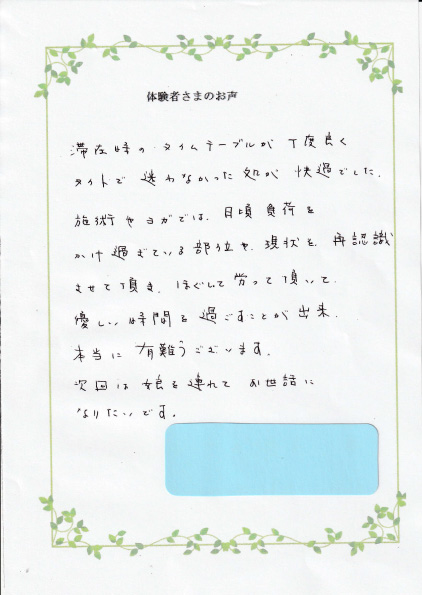 体験者さまのお声
滞在時のタイムテーブルが丁度良く
タイトで迷わなかった処が快適でした。
施術やヨガでは、日頃負荷を
かけ過ぎている部位や、現状を、再認識
させて頂き、ほぐして労って頂いて、
優しい時間を過ごすことが出来、
本当に有難うございます。
次回は娘を連れてお世話に
なりたいです。